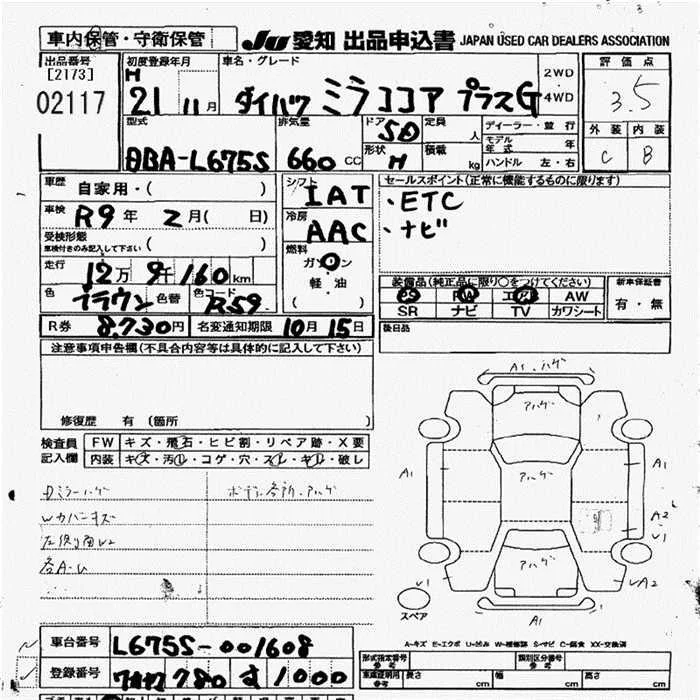 車内保管・守衛保管
JU 愛知 出品申込書 JAPAN USED CAR DEALERS ASSOCIATION
出品番号
[2173]
02117
初度登録年月
H
21 11月
車名・グレード
ダイハツ ミラココア プラスG
2WD
4WD
評価点
3.5
外装 内装
C B
型式
DBA-L675S
排気量
660 CC
ドア 5D
形状 H
定員 人
積載 kg
ディーラー・並行
モデル年式 年
ハンドル 左・右
車歴 自家用・( )
車検 R9年 2月( 日)
受検形態
車検付きのみ記入して下さい ( )
走行 12万 9千 160km
色 ブラウン 色替 色コード R59
R券 8,730円 名変通知期限 10月 15日
シフト IAT
冷房 AAC
燃料
ガソリン
・
軽油
( )
セールスポイント(正常に機能するものに限ります)
・ETC
・ナビ
装備品(純正品に限り○をつけてください)
PS PW エアB AW
SR ナビ TV カワシート
新車保証書
有・無
後日品
注意事項申告欄(不具合内容等は具体的に記入して下さい)
修復歴 有 (箇所 )
検査員記入欄
FW キズ・飛石・ヒビ割・リペア跡・X要
内装 キズ・汚レ・コゲ・穴・スレ・キレ・破レ
ボディ各所・アハゲ
Wカバーキズ
A1.ハゲ
アハゲ
A1
アハゲ
A1
A2
V1
アハゲ
V1
A2
A1
スペア
A-キズ E-エクボ U-凹み W-補修跡 S-サビ C-腐食 XX-交換済
車台番号 L675S-001608
登録番号 780 す 1000
形式指定番号
参考
類別区分番号
参考
車庫証明用
参考
長さ cm 幅 cm 高さ cm